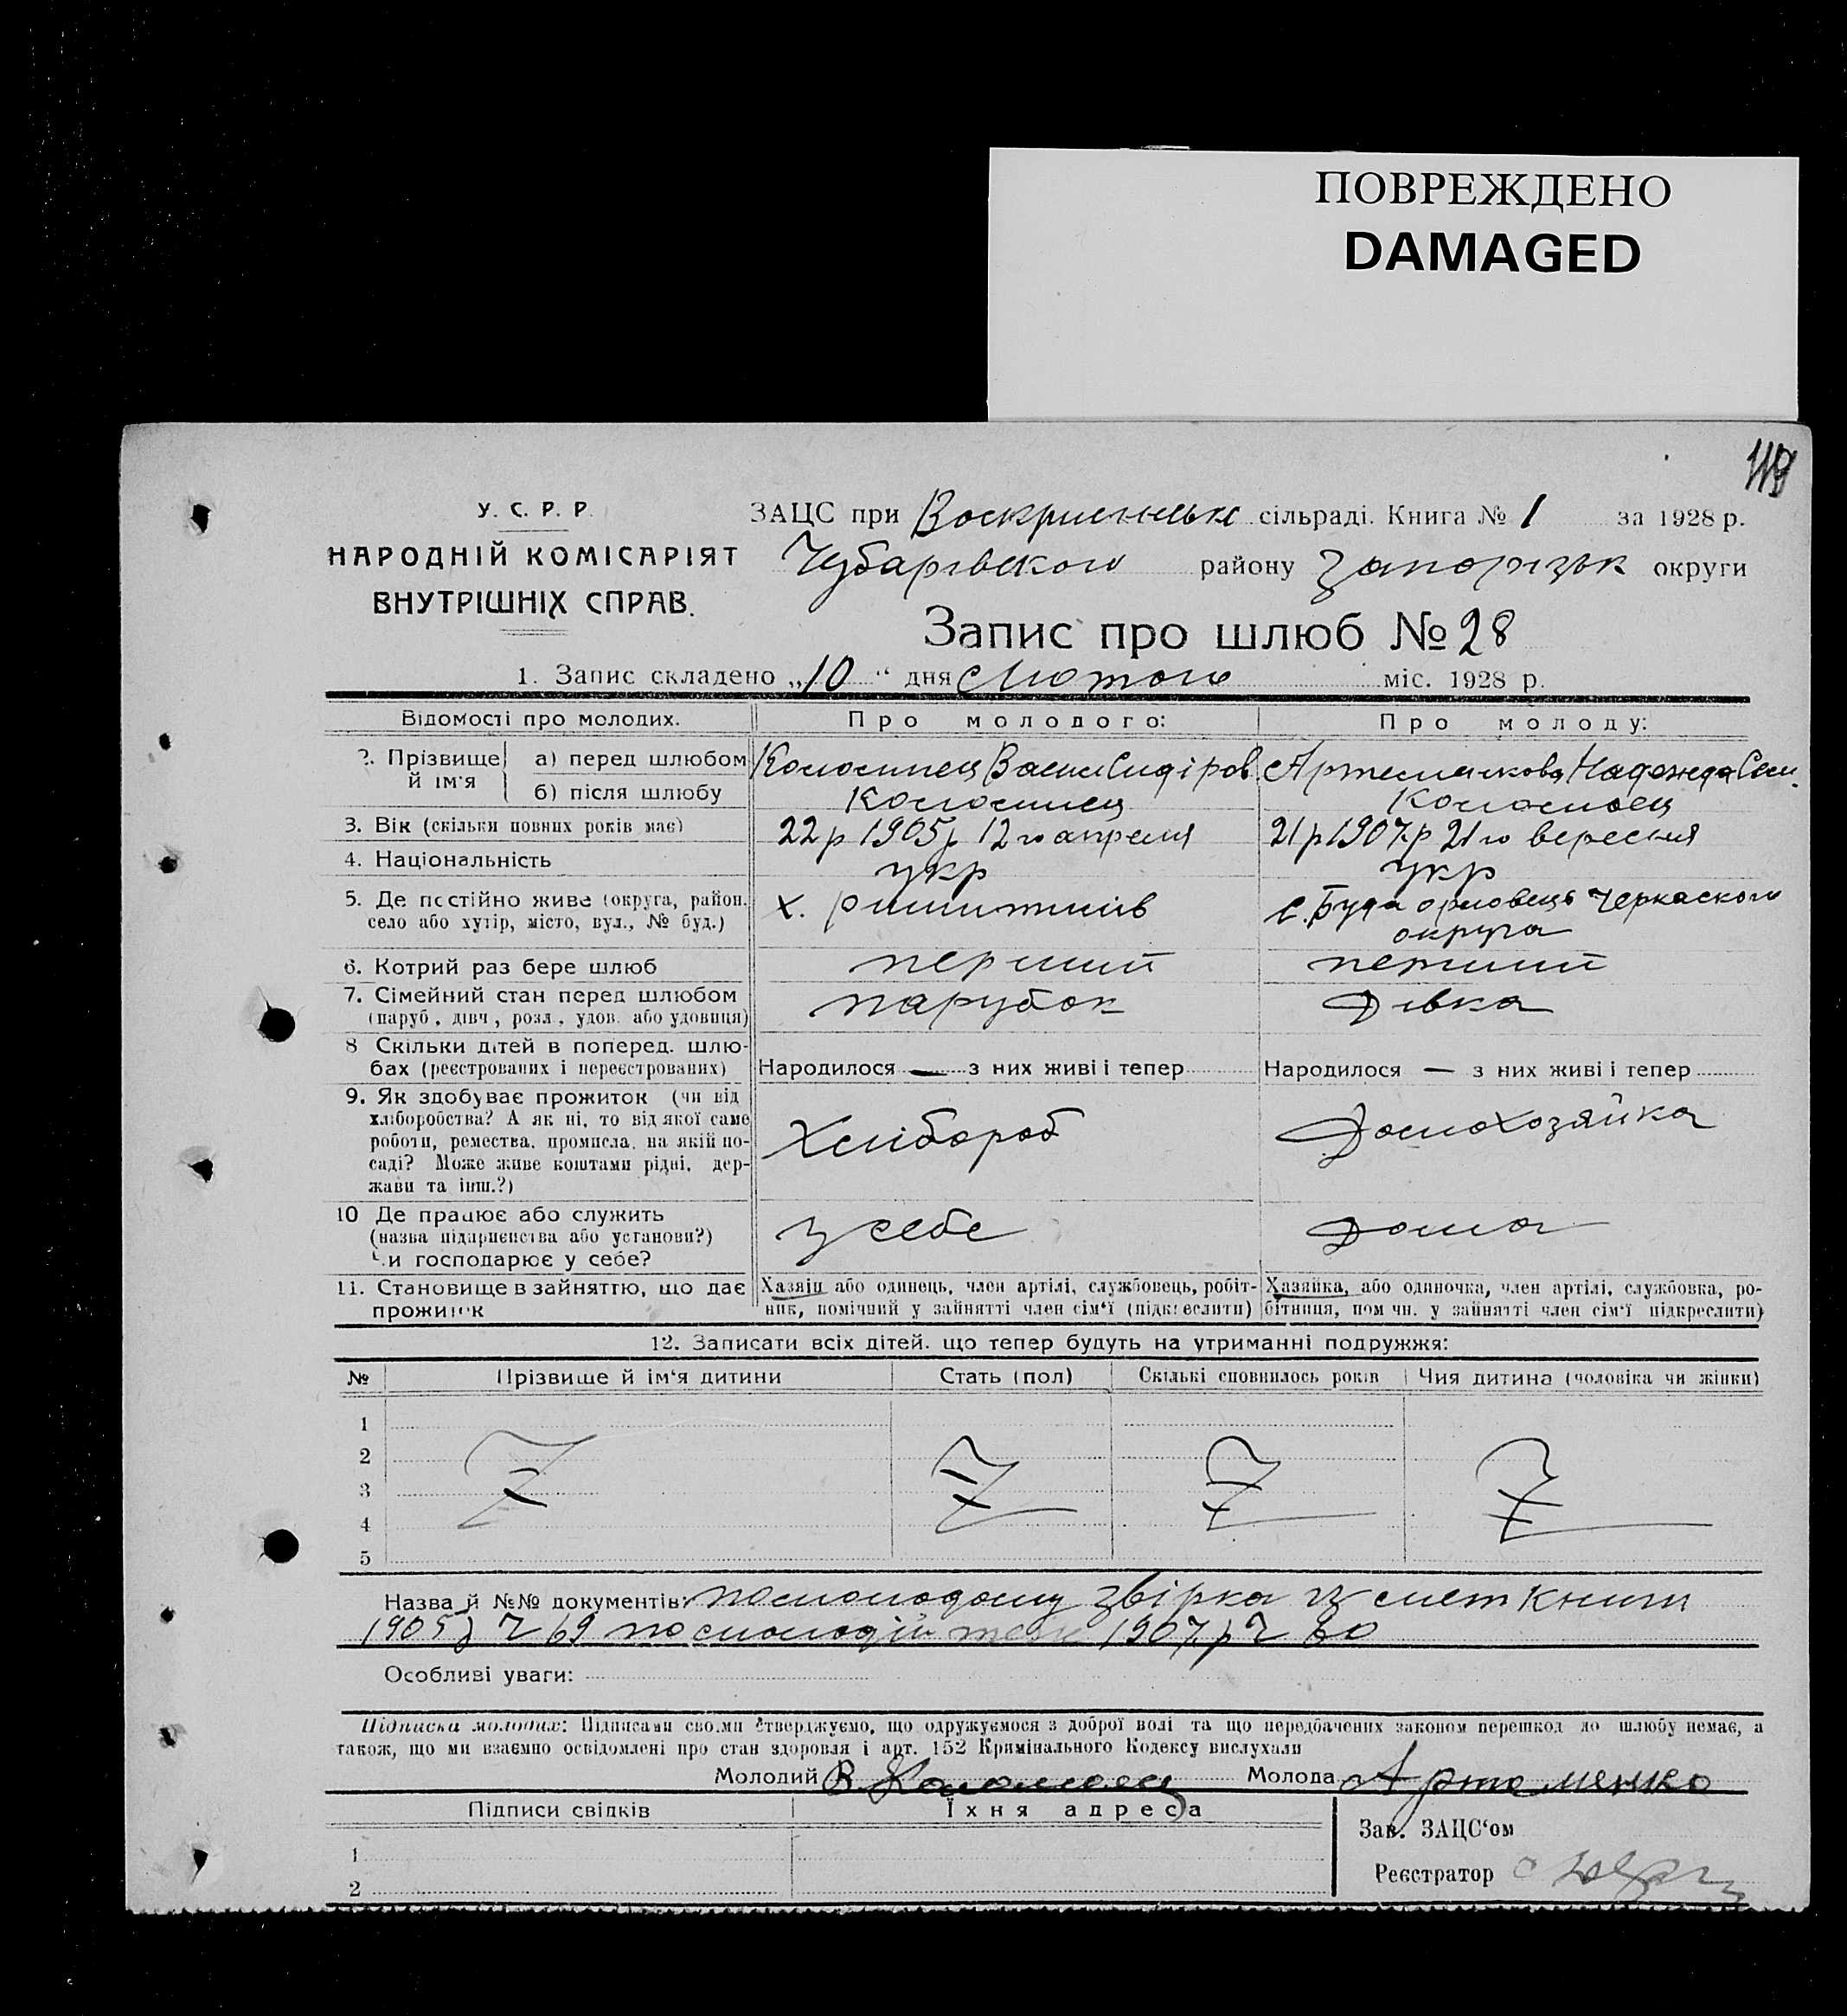 ПОВРЕЖДЕНО
DAMAGED
У. С. Р. Р.
НАРОДНІЙ КОМІСАРІЯТ
ВНУТРІШНІХ СПРАВ.
ЗАЦС при сільраді. Книга № 1 за 1928 р.
Чубарівского району Запорізьк округи
Запис про шлюб № 28
1. Запис складено „10“ дня Лютого міс. 1928 р.
Відомості про молодих. Про молодого: Про молоду:
2. Прізвище й ім'я
а) перед шлюбом Сидіров Надежда
б) після шлюбу
3. Вік (скільки повних років має) 22 р 1905 р 12 го апреля 21 р 1907 р 21 го вересня
4. Національність укр укр
5. Де постійно живе (округа, район, село або хутір, місто, вул., № буд.) х. с. Буда орловець Черкаского
округа
6. Котрий раз бере шлюб перший перший
7. Сімейний стан перед шлюбом
(паруб., дівч., розл., удов. або удовиця) парубок Дівка
8 Скільки дітей в поперед. шлю-
бах (реєстрованих і нереєстрованих) Народилося — з них живі і тепер Народилося — з них живі і тепер
9. Як здобуває прожиток (чи від
хліборобства? А як ні, то від якої саме
роботи, ремества, промисла, на якій по-
саді? Може живе коштами рідні, дер-
жави та інш.?)
Хлібороб Домохозяйка
10 Де працює або служить
(назва підприємства або установи?)
Чи господарює у себе?
у себе дома
11. Становище в зайняттю, що дає
прожиток
Хазяїн або одинець, член артілі, службовець, робіт-
ник, помічний у зайнятті член сім'ї (підкреслити)
Хазяйка, або одиночка, член артілі, службовка, ро-
бітниця, помічн. у зайнятті член сім'ї підкреслити)
12. Записати всіх дітей. що тепер будуть на утриманні подружжя:
№ Прізвище й ім'я дитини Стать (пол) Скількі сповнилось років Чия дитина (чоловіка чи жінки)
1
2
3
4
5
Назва й №№ документів: по молодому звірка из мет книги
1905 р Ч 69 по молодій 1907 р Ч 60
Особливі уваги:
Підписка молодих: Підписами своїми стверджуємо, що одружуємося з доброї волі та що передбачених законом перешкод до шлюбу немає, а
також, що ми взаємно освідомлені про стан здоровля і арт. 152 Кримінального Кодексу вислухали
Молодий В. Коломоец Молода Артеменко
Підписи свідків Їхня адреса
Зав. ЗАЦС'ом
1
Реєстратор
2